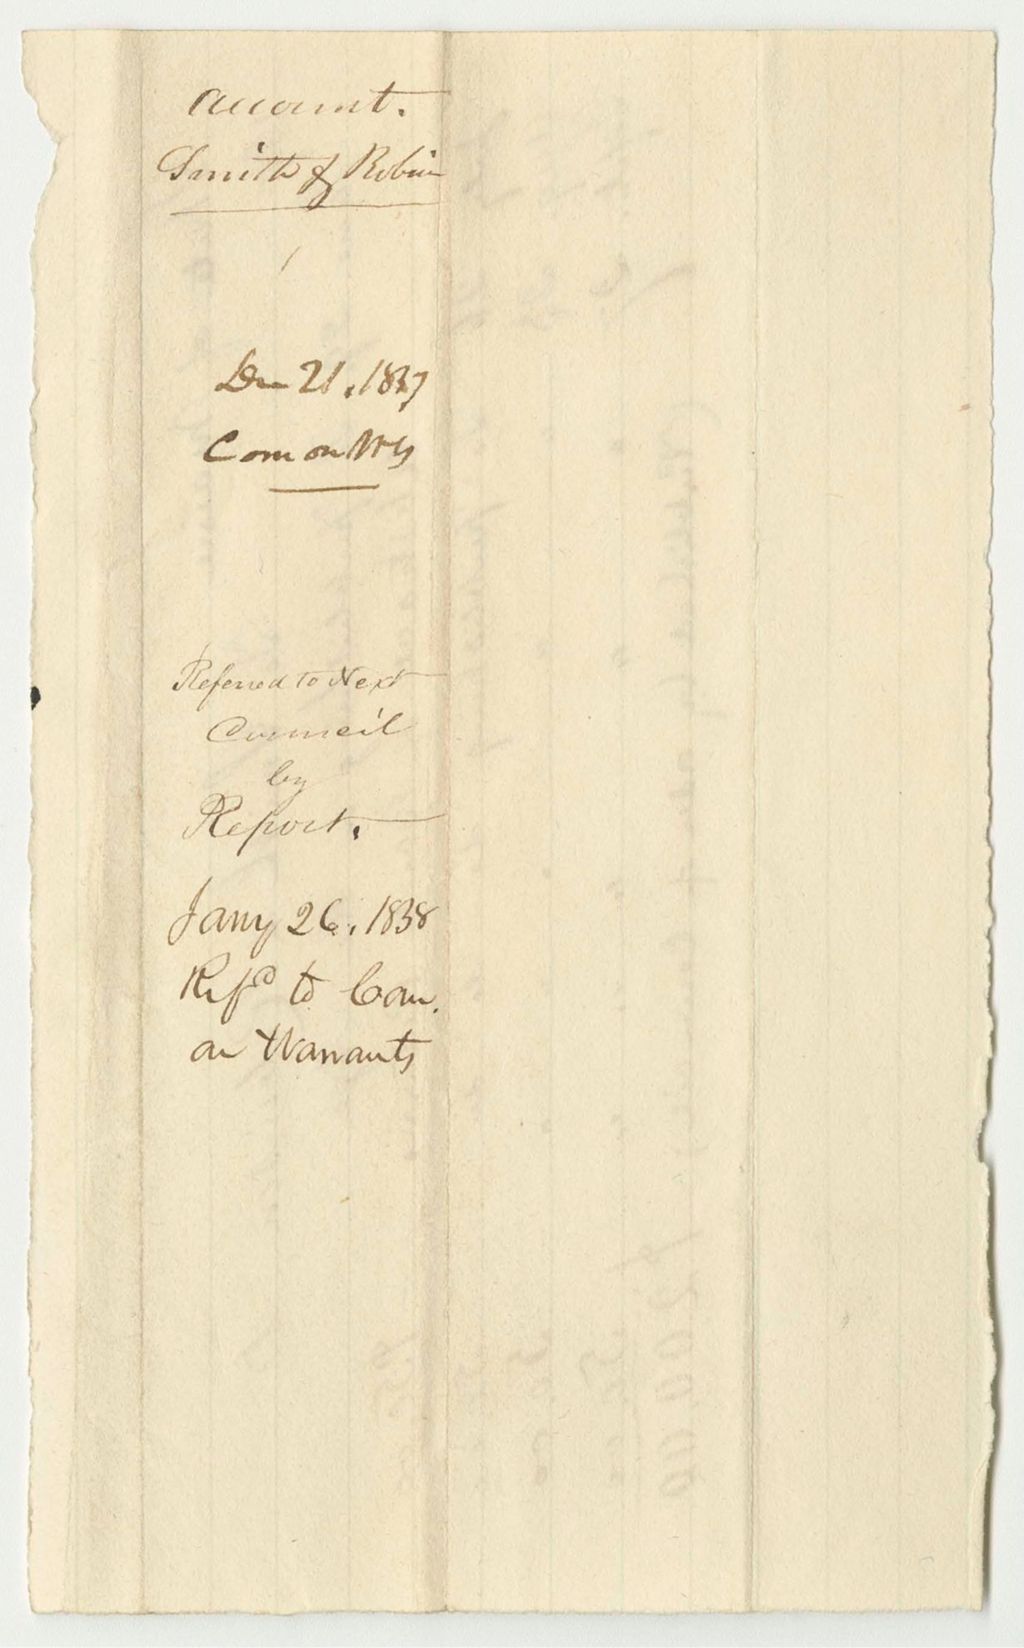 Account.
Smith & Robin
Dec 21, 1837
Com on Wts
Referred to Next
Council
by
Report.
Jany 26, 1838
Refd to Com.
on Warrants